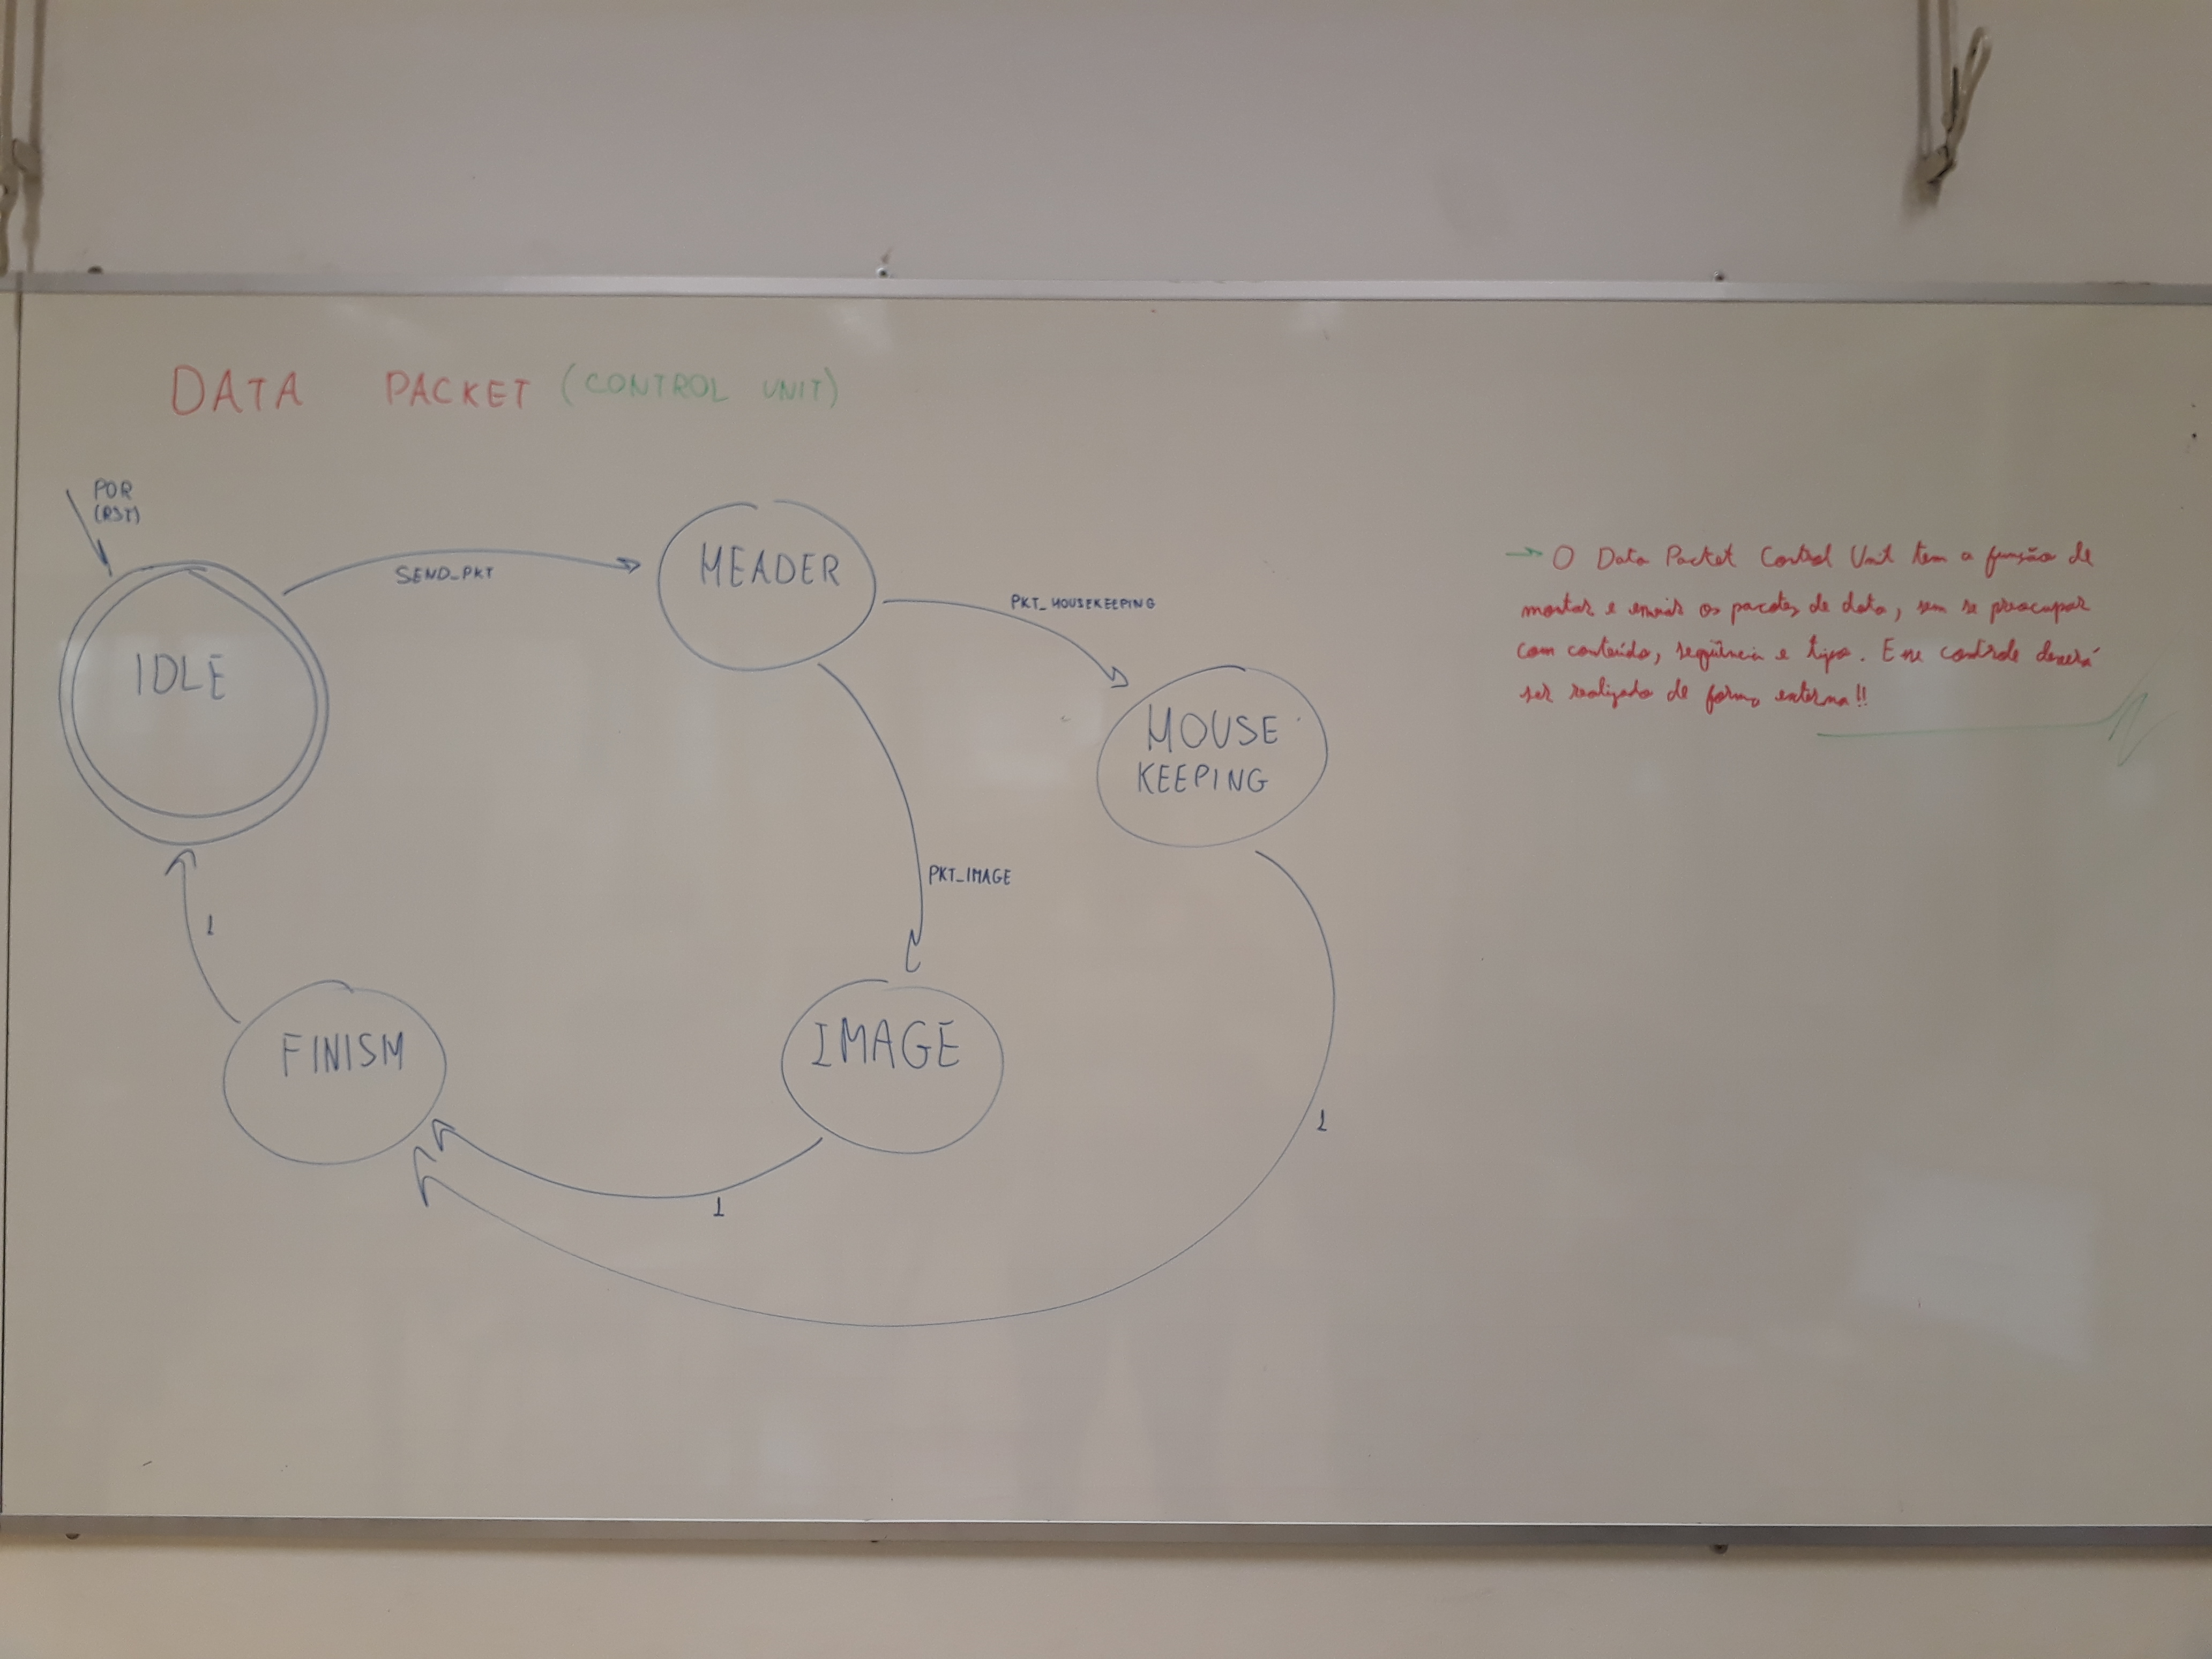 DATA PACKET (CONTROL UNIT)
POR
(RST)
SEND_PKT
HEADER
PKT_HOUSEKEEPING
IDLE
HOUSE
KEEPING
PKT_IMAGE
1
FINISH
IMAGE
1
1
→ O Data Packet Control Unit tem a função de
montar e enviar os pacotes de data, sem se preocupar
com conteúdo, seqüência e tipo. Esse controle deverá
ser realizado de forma externa!!